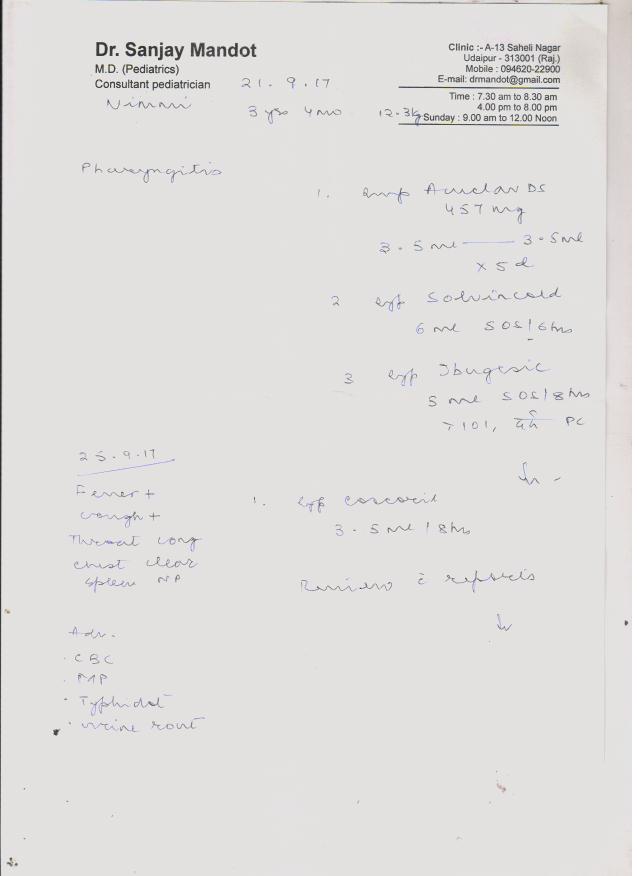 Dr. Sanjay Mandot
M.D. (Pediatrics)
Consultant pediatrician
Clinic :- A-13 Saheli Nagar
Udaipur - 313001 (Raj.)
Mobile : 094620-22900
E-mail: drmandot@gmail.com
Time : 7.30 am to 8.30 am
4.00 pm to 8.00 pm
Sunday : 9.00 am to 12.00 Noon
21.9.17
Nimmi 3 yrs 4 mo 12.3kg
Pharyngitis
1. Syp Amclav DS
457 mg
3.5ml — 3.5ml
x 5 d
2 Syp Solvincold
6 ml SOS/6hrs
3 Syp Ibugesic
5 ml SOS/8hrs
>101, PC
25.9.17
Fever +
cough +
Throat cong
chest clear
Spleen NP
1. Syp Coscoril
3.5ml/8hrs
Review c̄ reports
Adv.
. CBC
. PMP
. Typhidot
. urine rout